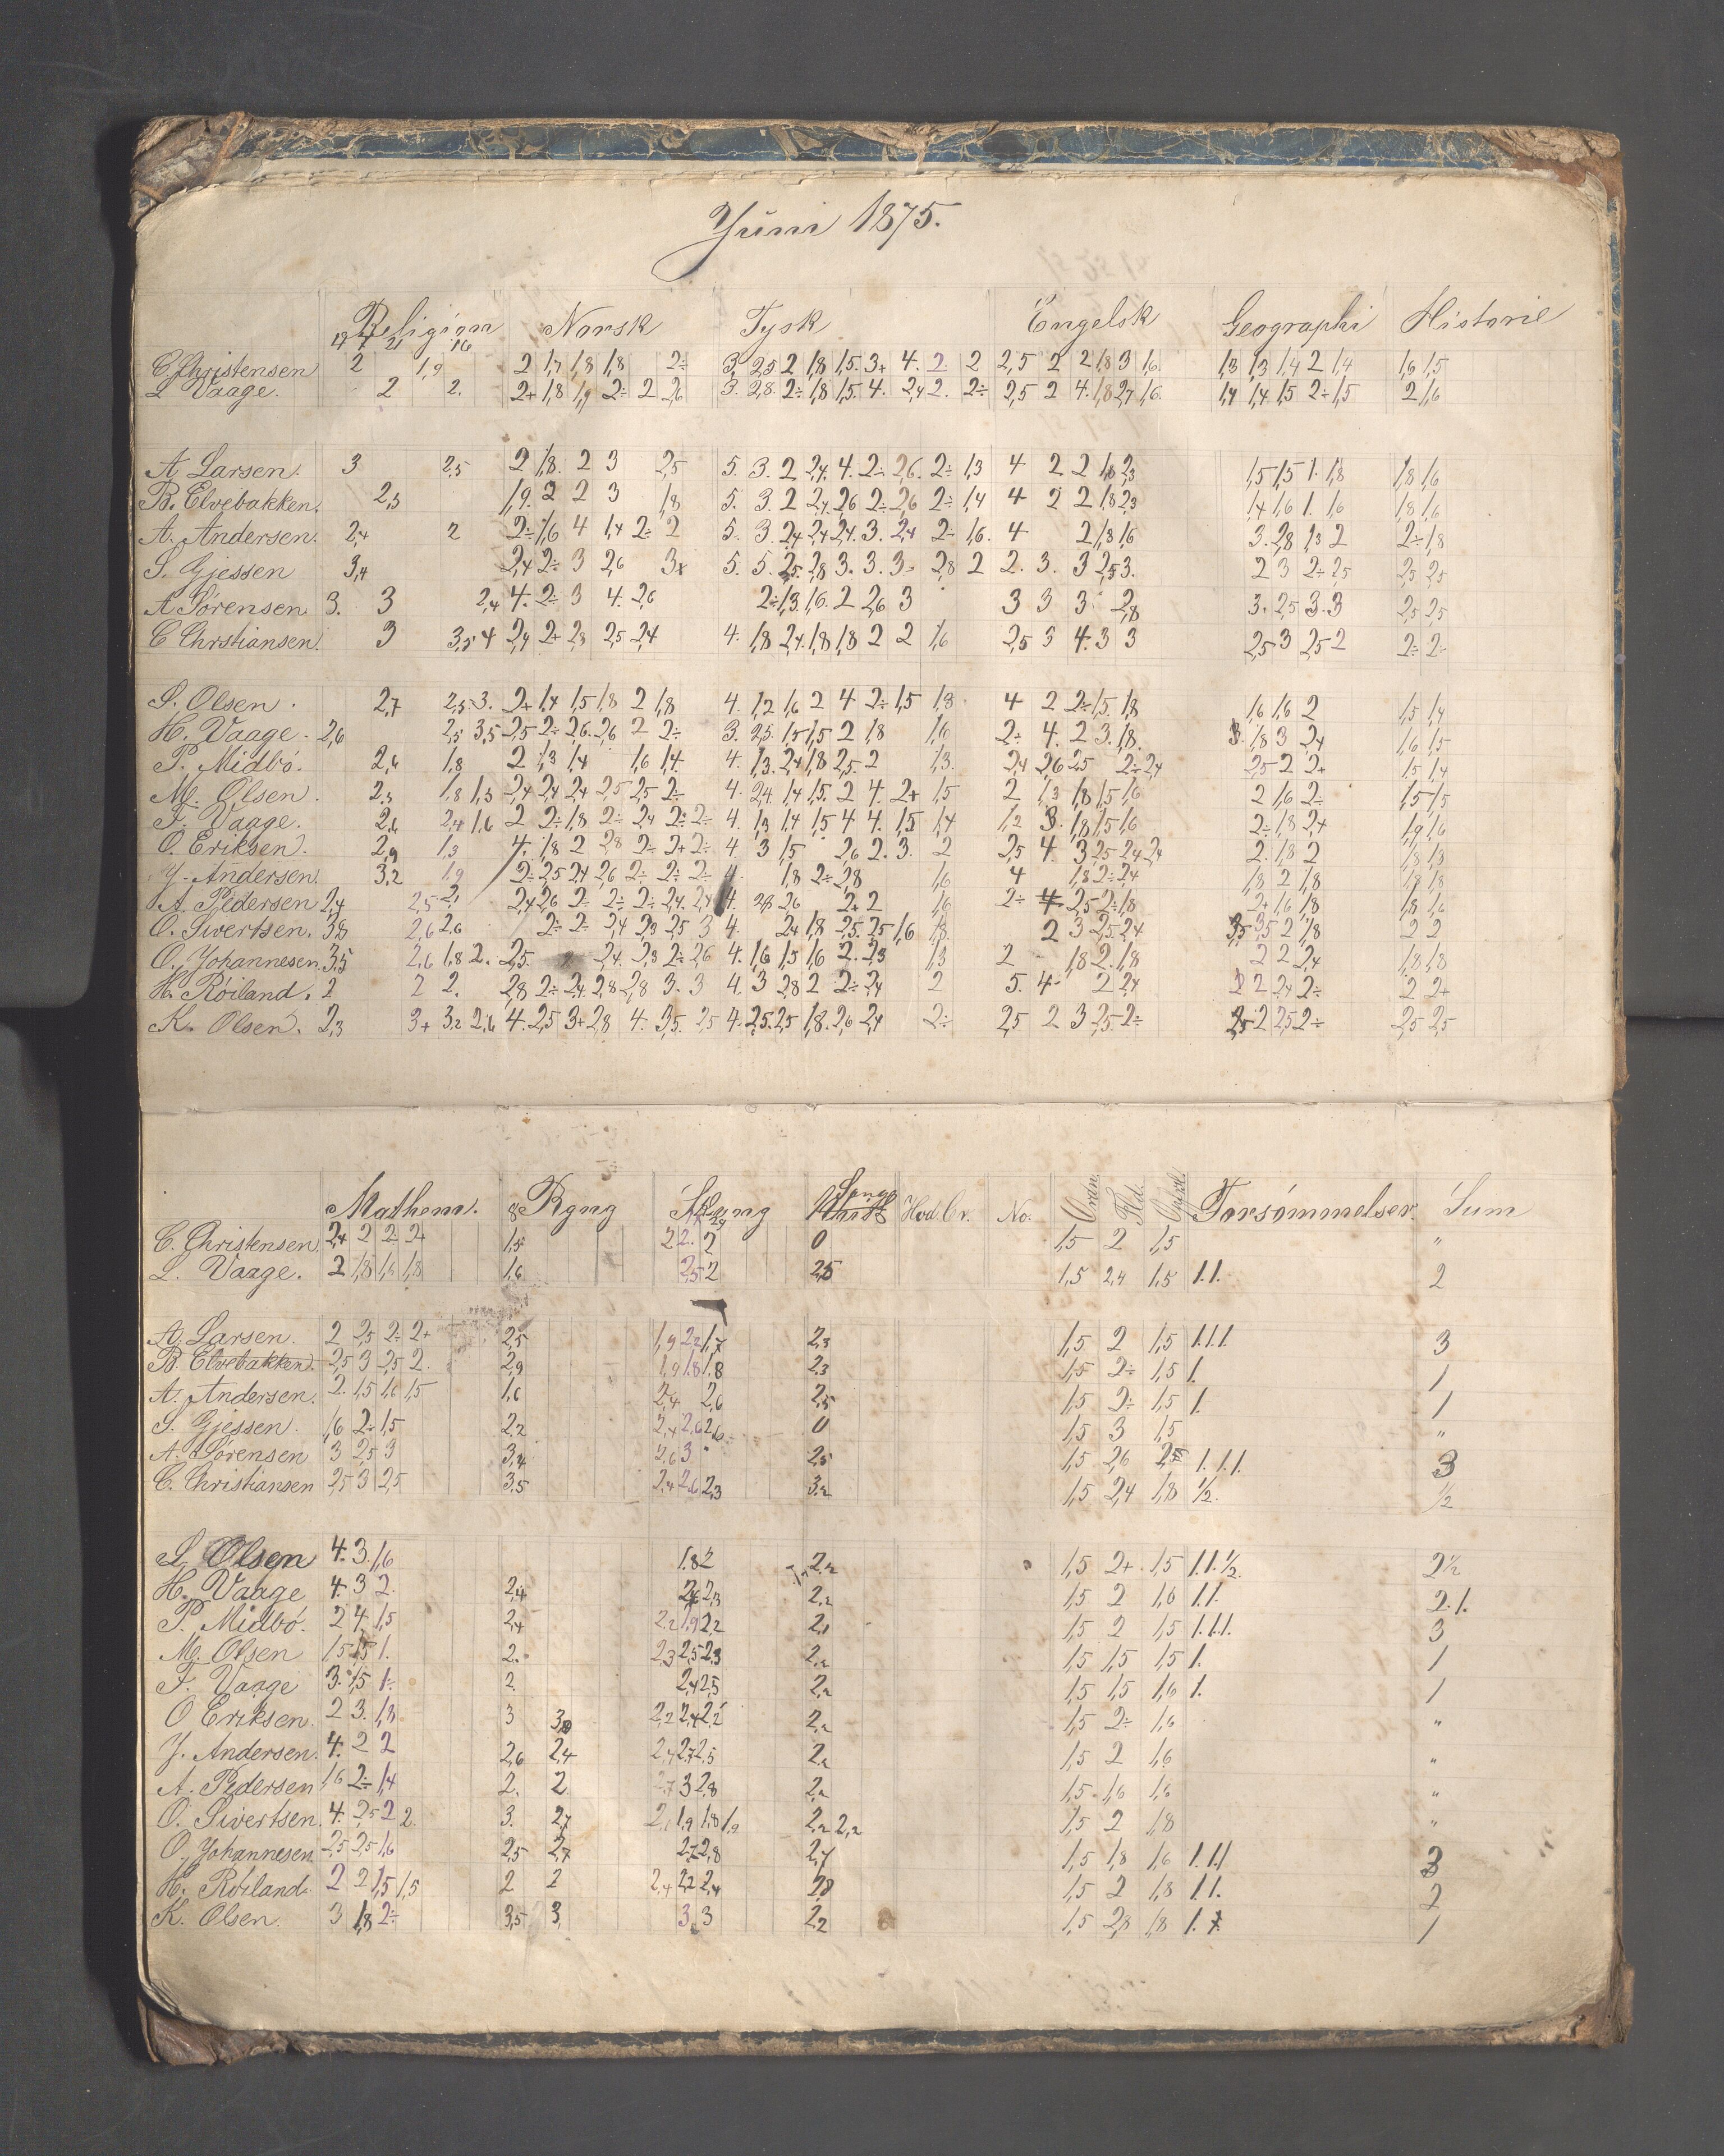 Juni 1875.
Religion Norsk Tysk Engelsk Geographi Historie
C. Christensen 2 1,9 2 1,7 1,8 1,8 2÷ 3. 2,5 2 1,8 1,5. 3+ 4. 2. 2 2,5 2 2 1,8 3 1,6. 1,3 1,3 1,4 2 1,4 1,6 1,5
L. Vaage. 2 2. 2+ 1,8 1,9 2÷ 2 2,6 3. 2,8. 2÷ 1,8 1,5. 4. 2,4 2. 2÷ 2,5 2 4. 1,8 2,7 1,6. 1,4 1,4 1,5 2÷ 1,5 2 1,6
A. Larsen. 3 2,5 2 1,8. 2 3 2,5 5. 3. 2 2,4. 4. 2÷ 2,6. 2÷ 1,3 4 2 2 1,8 2,3 1,5 1,5 1. 1,8 1,8 1,6
B. Elvebakken. 2,3 1,9. 2 2 3 1,8 5. 3. 2 2,4. 2,6 2÷ 2,6 2÷ 1,4 4 2 2 1,8 2,3 1,4 1,6 1. 1,6 1,8 1,6
A. Andersen. 2,4 2 2÷ 1,6 4 1,4 2÷ 2 5. 3. 2,4 2,4 2,4. 3. 2,4 2÷ 1,6. 4 2 1,8 1,6 3. 2,8 1,3 2 2÷ 1,8
S. Gjessen 3,4 2,4 2÷ 3 2,6 5. 5. 2,5. 2,8 3. 3. 3 2,8 2 2. 3. 3 2,5 3. 2 3 2÷ 2,5 2,5 2,5
A Sørensen. 3. 3 2,4 4. 2÷ 3 4. 2,6 2÷ 1,3. 1,6. 2 2,6 3 3 3 3 2,8 3. 2,5 3. 3 2,5 2,5
C Chrstiansen. 3 3,5 4 2,4 2+ 2,3 2,5 2,4 4. 1,8 2,4. 1,8 1,8 2 2 1,6 2,5 3 4. 3 3 2,5 3 2,5 2 2÷ 2÷
S. Olsen. 2,7 2,5 3. 2+ 1,4 1,5 1,8 2 1,8 4. 1,2 1,6 2 4 2÷ 1,5 1,8 4 2 2÷ 1,5 1,8 1,6 1,6 2 1,5 1,4
H. Vaage. 2,6 2,5 3,5 2,5 2÷ 2,6. 2,6 2 2÷ 3. 2,5. 1,5 1,5 2 1,8 1,6 2÷ 4. 2 3. 1,8. 3. 1,8 3 2,4 1,6 1,5
P. Midbö. 2,6 1,8 2 1,3 1,4 1,6 1,4. 4. 1,3. 2,4 1,8 2,5. 2 1,3. 2,4 2,6 2,5 2÷ 2,4 2,5 2 2+ 1,5 1,4
M. Olsen. 2,3 1,8 1,3 2,4 2,4 2,4 2,5 2,5 2÷ 4. 2,4. 1,4 1,5. 2 4. 2+ 1,5 2 1,3 1,8 1,5 1,6 2 1,6 2÷ 1,5 1,5
F. Vaage. 2,6 2,4 1,6 2 2÷ 1,8 2÷ 2,4 2÷ 2÷ 4. 1,3 1,4 1,5 4 4. 1,5 1,4 1,2 3. 1,8 1,5 1,6 2÷ 1,8 2,4 1,9 1,6
O. Eriksen. 2,9 1,3 4. 1,8 2 2,8 2÷ 2+ 2÷ 4. 3 1,5 2,6 2. 3. 2 2,5 4. 3 2,5 2,4 2,4 2. 1,8 2 1,8 1,8
J. Andersen. 3,2 1,9 2÷ 2,5 2,4 2,6 2÷ 2÷ 2÷ 4. 1,8 2÷ 2,8 1,6 4 1,8 2÷ 2,4 1,8 2 1,8 1,8 1,8
A. Pedersen 2,4 2,5 2. 2,4 2,6 2÷ 2÷ 2÷ 2,4. 2,4 4. 2,8 2,6 2+ 2 1,6 2÷ 4 2,5 2÷ 1,8 2+ 1,6 1,8 1,8 1,6
O. Sivertsen. 3,8 2,6 2,6 2÷ 2÷ 2,4 2,3 2,5 3 4. 2,4 1,8 2,5. 2,5 1,6 1,8. 2 3 2,5 2,4 3,5 3,5 2 1,8 2 2
O. Johannesen. 3,5 2,6 1,8 2. 2,5. 2,4. 2,3 2÷ 2,6 4. 1,6 1,5 1,6 2. 2,3 1,3 2 1,8 2. 1,8 2 2 2,4 1,8 1,8
H. Röiland. 2 2 2. 2,8 2÷ 2,4 2,8 2,8 3. 3 4. 3 2,8 2 2÷ 2,4 2 5. 4 2 2,4 2 2 2,4 2÷ 2 2+
K. Olsen. 2,3 3+ 3,2 2,6 4. 2,5 3+ 2,8 4. 3,5. 2,5 4. 2,5. 2,5 1,8. 2,6 2,4 2÷ 2,5 2 3 2,5 2÷ 2,5 2 2,5 2÷ 2,5 2,5
Mathem. Rgng Sang Hod.br. No. Orden Flid. Forsømmelser. Sum
C. Christensen. 2,4 2 2 2 1,5 2 2. 2 0 1,5 2 1,5 "
L. Vaage. 2 1,8 1,6 1,8 1,6 2,5 2 2,5 1,5 2,4 1,5 1. 1. 2
A. Larsen. 2 2,5 2÷ 2+ 2,5 1,9 2,2 1,7 2,3 1,5 2 1,5 1. 1. 1. 3
B. Elvebakken. 2,5 3 2,5 2. 2,9 1,9 1,8 1,8 2,3 1,5 2÷ 1,5 1. 1
A. Andersen. 2. 1,5 1,6 1,5 1,6 2,4 2,6 2,5 1,5 2÷ 1,5 1. 1
S. Gjessen. 1,6 2÷ 1,5 2,2 2,4 2,6 2,6 0 1,5 3 1,5 "
A. Sørensen 3 2,5 3 3,4 2,6 3 2,5 1,5 2,6 1. 1. 1. 3
C. Christiansen 2,5 3 2,5 3,5 2,4 2,6 2,3 3,2 1,5 2,4 1,8 1/2. 1/2
S. Olsen 4. 3. 1,6 1,8 2 2,2 1,5 2+ 1,5 1. 1. 1/2. 2 1/2
H. Vaage 4. 3 2. 2,4 2,3 2,2 1,5 2 1,6 1. 1. 2.
P. Midbö. 2 4. 1,5 2,4 2,2 1,9 2,2 2,1 1,5 2 1,5 1. 1. 1. 3
M. Olsen 1,5 1,5 1. 2. 2,3 2,5 2,3 2,2 1,5 1,5 1,5 1. 1
F. Vaage 3. 1,5 1÷ 2 2,4 2,5 2,2 1,5 1,5 1,6 1. 1
O Eriksen. 2 3. 1,8 3 2,2 2,4 2,2 2,2 1,5 2÷ 1,6 "
J. Andersen. 4. 2 2 2,6 2,4 2,4 2,7 2,5 2,2 1,5 2 1,6 "
A. Pedersen 1,6 2÷ 1,4 2. 2 2,7 3 2,8 2,2 1,5 1,6 1,6 "
O. Sivertsen. 4. 2,5 2 2. 3. 2,7 2, 1,9 1,8 1,9 2,2 2,2 1,5 2 1,8 "
O. Johannesen. 2,5 2,5 1,6 2,5 2,7 2,7 2,8 2,7 1,5 1,8 1,6 1. 1. 1 3
H. Röiland. 2 2 1,5 1,5 2 2 2,4 2,2 2,4 2,8 1,5 2 1,8 1. 1. 2
K. Olsen. 3 1,8 2÷ 3,5 3. 3. 3 2,2 1,5 2,8 1,8 1. 1